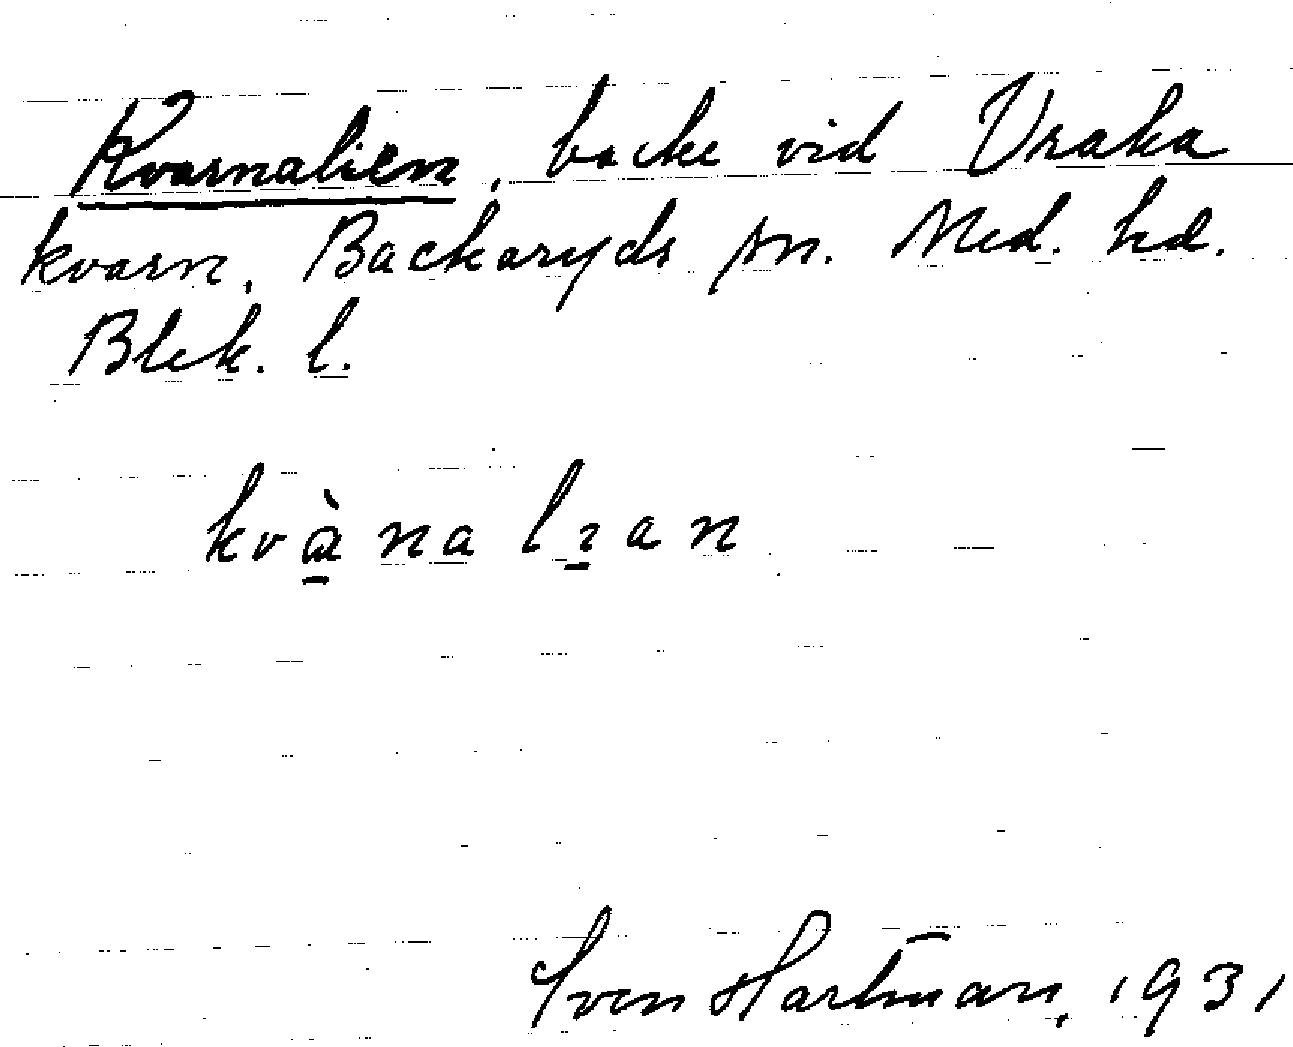 Kvarnalien, backe vid Vraka
kvarn, Backaryds sn. Med. hd.
Blek. l.
kvà̱na lɿ̱an
Sven Hartman, 1931